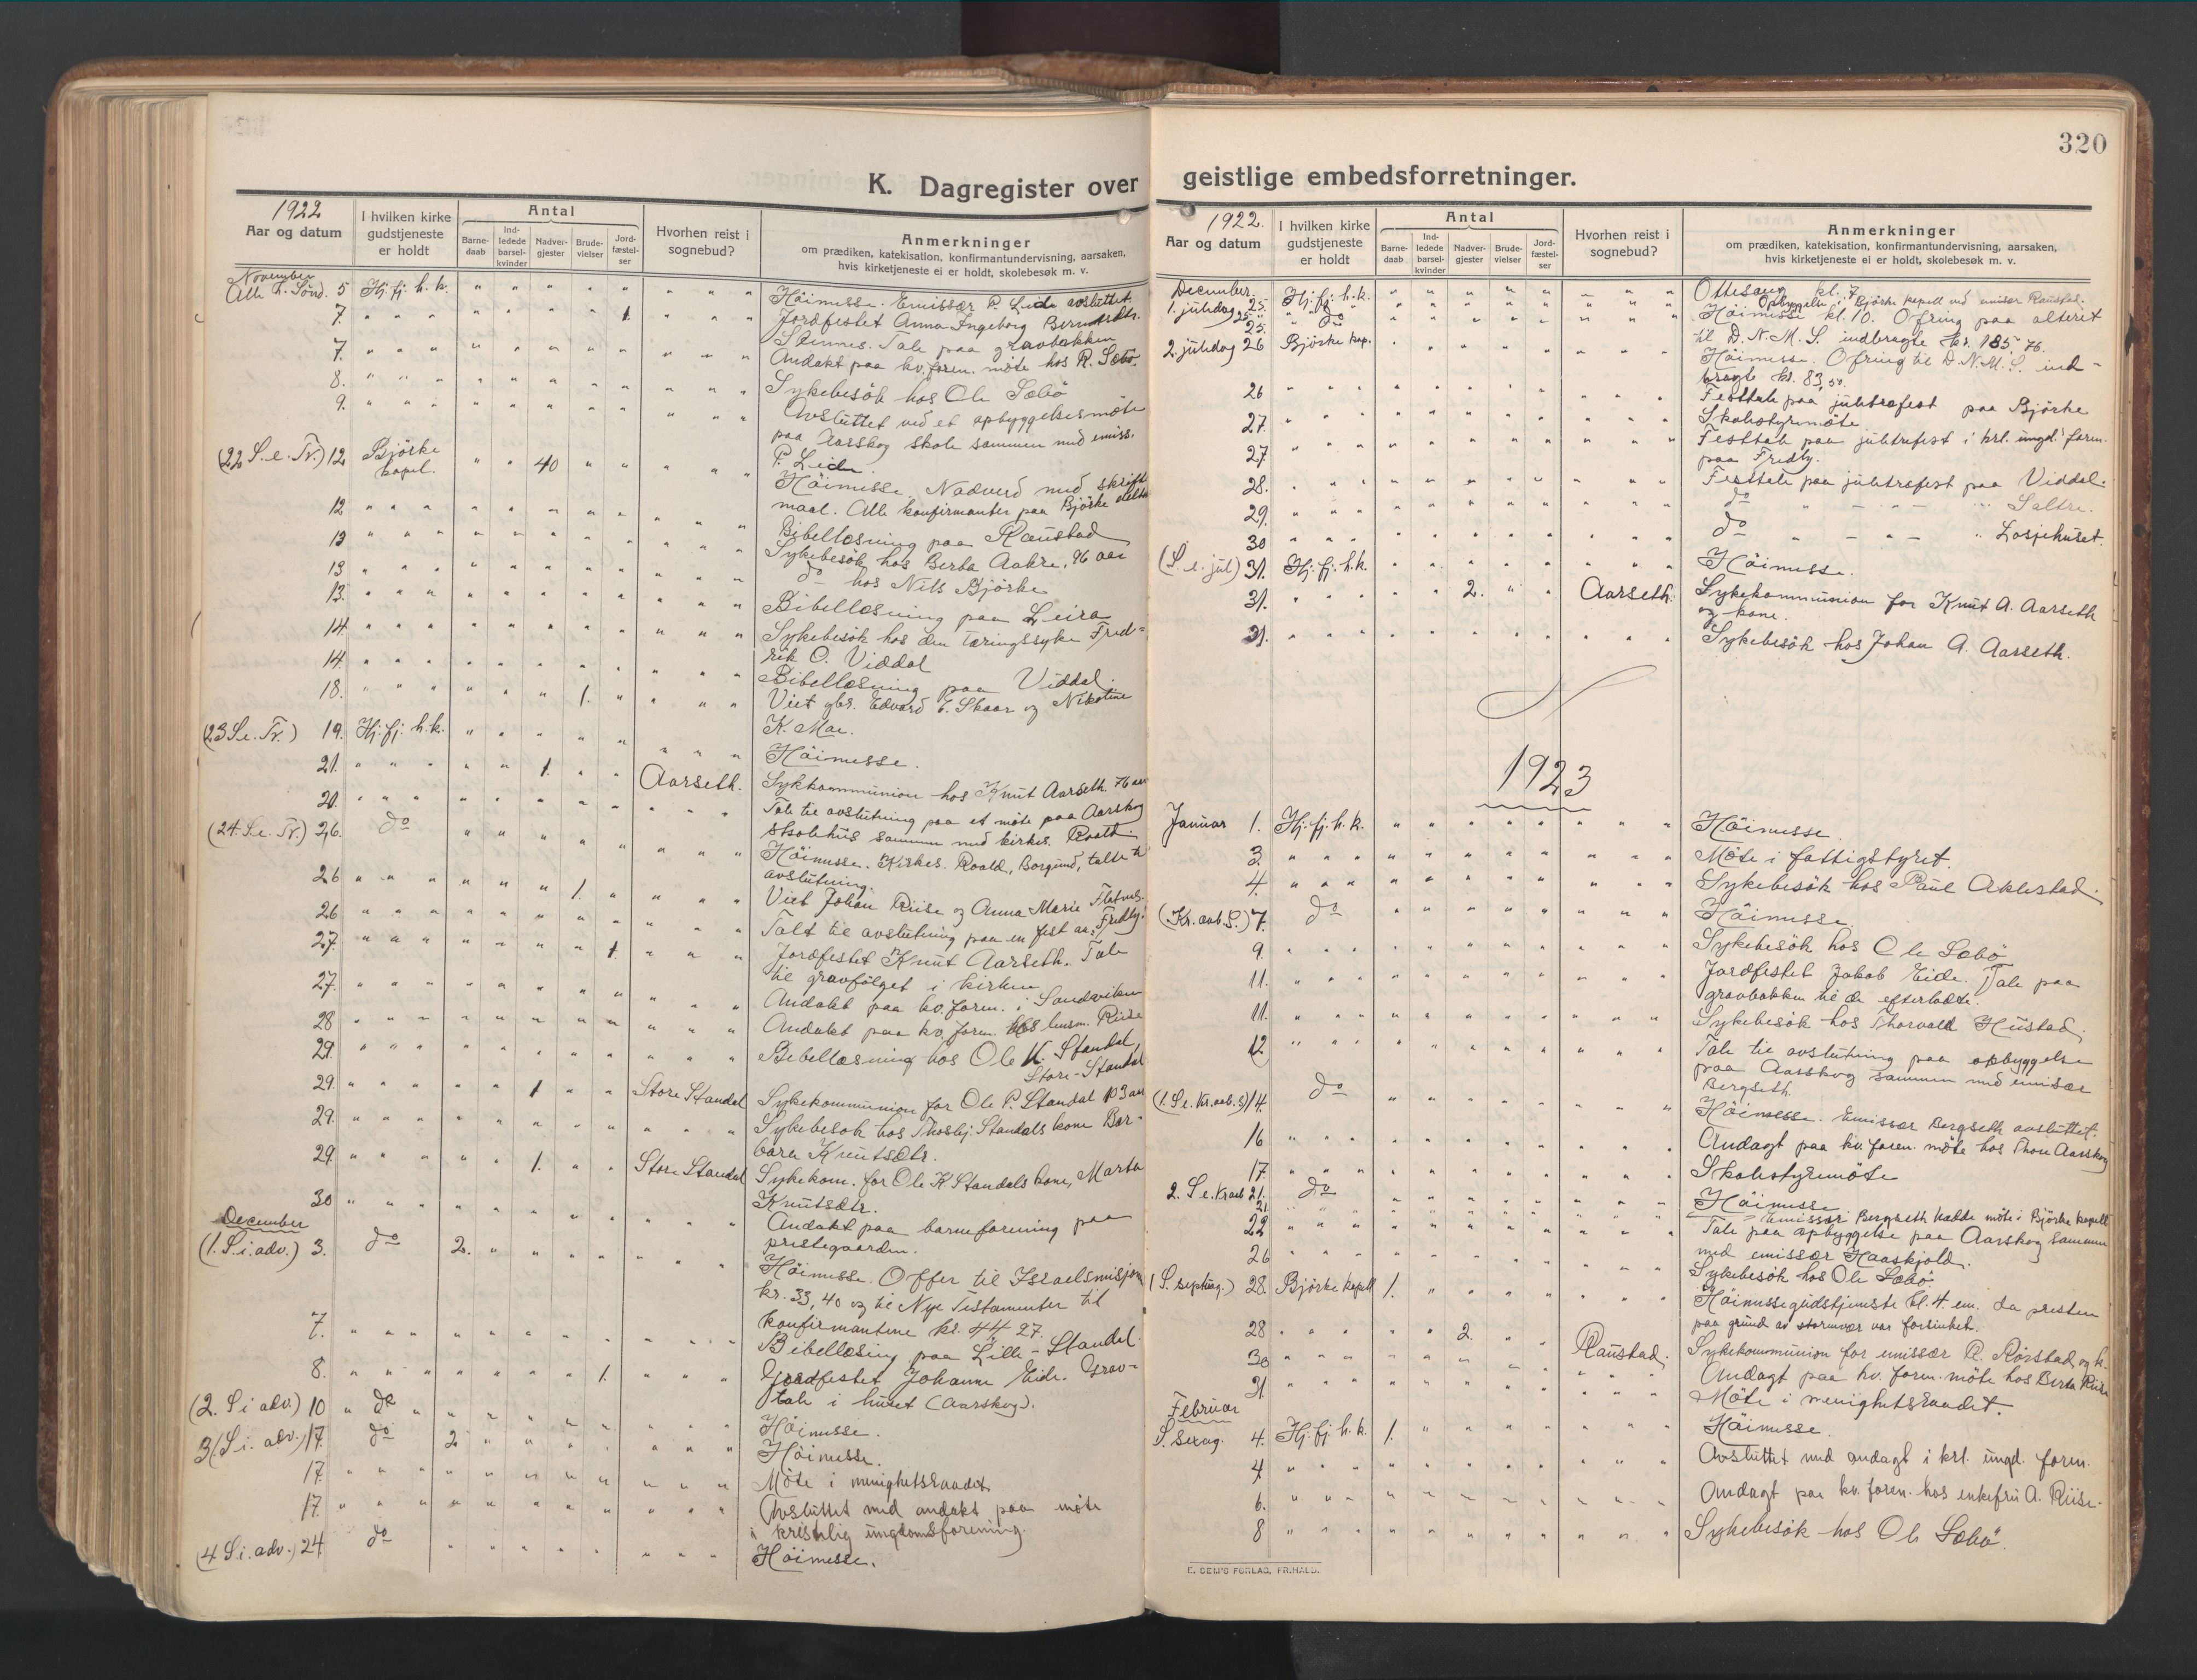 320
K. Dagregister over geistlige embedsforretninger.
1922
Aar og datum
I hvilken kirke gudstjeneste er holdt
Antal
Barne-daab
Ind-ledede barsel-kvinder
Nadver-gjester
Brude-vielser
Jord-fæstel-ser
Hvorhen reist i sognebud?
Anmerkninger
om prædiken, katekisation, konfirmantundervisning, aarsaken,
hvis kirketjeneste ei er holdt, skolebesøk m. v.
November
Alle h. Sönd. 5 Hj. fj. h. k. Höimesse. Emissær P. Leide avsluttet.
7. 1. Jordfestet Anna Ingeborg Berntsdtr.
Stennes. Tale paa gravbakken
7. Andakt paa kv. foren. möte hos R. Sæbö.
8. Sykebesök hos Ole Sæbö
9. Avsluttet ved et opbyggelsesmöte
paa Aarskog skole sammen med emiss.
P. Leide.
(22 S. e. Tr.) 12 Björke kapel. 40 Höimesse. Nadverd med skrifte
maal. Alle konfirmanter paa Bjöike deltok
12 Bibellæsning paa Raustad
13 Sykebesök hos Berta Aakre, 96 aar
13 do hos Nils Bjöike
13. Bibellæsning paa Leira
14. Sykebesök hos den tæringssyke Fred-
rik O. Viddal
14. Bibellæsning paa Viddal.
18. 1. Viet gbr. Edvard E. Skaar og Nikoline
K. Moe.
(23 S. e. Tr.) 19. Hj. fj. h. k. Höimesse.
21. 1. Aarseth. Sykkommunion hos Knut Aarseth. 76 aar
20. Tale til avslutning paa et möte paa Aarskog
skolehus sammen med kirkes. Roald
(24 S. e. Tr.) 26. do Höimesse. Kirkes. Roald, Borgund, talte til
avslutning.
26 1. Viet Johan Riise og Anna-Marie
26 Talt til avslutning paa en fest aa: Fredly.
27. 1. Jordfestet Knut Aarseth. Tale
til gravfölget i kirken
27. Andakt paa kv. foren. i Sandviken
28 Andakt paa kv. foren. hos Riise
29. Bibellæsning hos Ole K. Standal,
Store-Standal
29. 1 Store Standal Sykekommunion for Ole P. Standal 103 aar
29. Sykebesök hos Thosbj. Standals kone Bar-
bara Knutsdtr.
29. 1. Store Standal Sykekom. for Ole K. Standals kone, Marta
Knutsdtr.
30 Andakt paa barneforening paa
prestegaarden.
December
(1. S. i. adv.) 3. do 2. Höimesse. Offer til Israelsmisjon
kr. 33,40 og til Nye Testamenter til
konfirmantene kr. 44,27.
7. Bibellæsing paa Lille-Standal.
8. 1. Jordfestet Johanne Eide. Grav-
tale i huset (Aarskog).
(2. S i adv.) 10 do Höimesse.
3 (S. i. adv.) 17. do 2 Höimesse.
17. Möte i menighetsraadet
17. Avsluttet med andakt paa möte
i kristelig ungdomsforening.
(4 S. i. adv.) 24 do Höimesse.
1922.
Aar og datum
I hvilken kirke gudstjeneste er holdt
Antal
Barne-daab
Ind-ledede barsel-kvinder
Nadver-gjester
Brude-vielser
Jord-fæstel-ser
Hvorhen reist i sognebud?
Anmerkninger
om prædiken, katekisation, konfirmantundervisning, aarsaken,
hvis kirketjeneste ei er holdt, skolebesøk m. v.
December.
1. juledag 25. Hj. fj. h. k. Ottesang kl. 7
25. Opbyggelse i Bjöike kapell ved emisær Raustad.
25. do Höimesse kl. 10. Ofring paa alteret
til D. N. M. S. indbragte kr. 185,76.
2. juledag 26 Bjöike kap. Höimesse. Ofring til D. N. M. S. ind-
bragte kr. 83,50.
26 Festtale paa juletræfest paa Bjöike
27. Skolestyremöte
27 Festtale paa juletrefest i krl. ungd. foren.
paa Fredly.
28. Festtale paa juletræfest paa Viddal.
29. do Saltre.
30 do Losjehuset.
(S. e. jul) 31. Hj. fj. h. k. Höimesse.
31. 2. Aarseth. Sykekommunion for Knut A. Aarseth
og kone.
31. Sykebesök hos Johan A. Aarseth.
1923
Januar 1. Hj. fj. h. k. Höimesse.
3. Möte i fattigstyret.
4. Sykebesök hos Paul Aklestad.
(Kr. aab. S.) 7. do Höimesse
9. Sykebesök hos Ole Sæbö
11. Jordfestet Jakob Eide. Tale paa
gravbakken til de efterladte.
11. Sykebesök hos Thorvald Hustad.
12 Tale til avslutning paa opbyggelse
paa Aarskog sammen med emisær
Bergseth.
(1. S. e. Kr. aab. S) 14. do Höimesse. Emissær Bergseth avsluttet.
16 Andagt paa kv. foren. möte hos Thore Aarskog
17. Skolestyremöte
2. S. e. Kr aab 21. do Höimesse
21. Emissær Bergseth hadde möte i Bjöike kapell
22 Tale paa opbyggelse paa Aarskog sammen
med emissær Haaskjold.
26 Sykebesök hos Ole Sæbö.
(S. septuag.) 28. Bjöike kapell 1. Höimessegudstjeneste kl. 4 em. da presten
paa grund av stormvær var forsinket.
28 2. Raustad. Sykekommunion for emissær R. Rörstad og k.
30 Andagt paa kv. foren. möte hos Berta Riise
31 Möte i menighetsraadet.
Februar
S. sexag. 4. Hj. fj. h. k. 1. Höimesse.
4 Avsluttet med andagt i krl. ungd. foren.
6. Andagt paa kv. foren. hos enkefru A. Riise.
8 Sykebesök hos Ole Sæbö.
E. SEM'S FORLAG, FR.HALD.